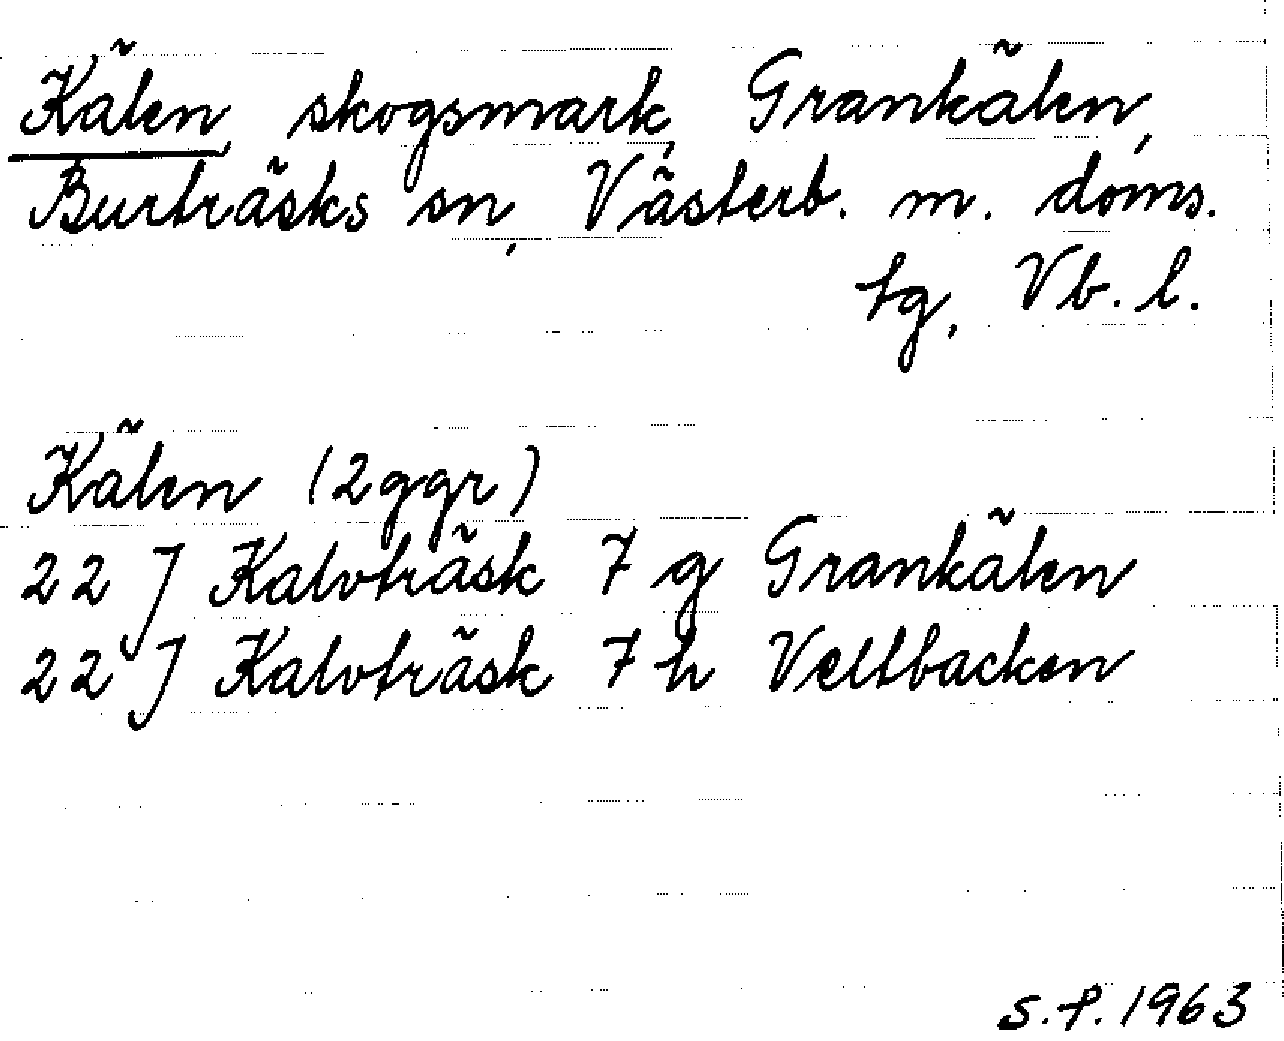 Kälen, skogsmark, Grankälen,
Burträsks sn, Västerb. m. doms.
tg, Vb. l.
Kälen (2 ggr)
22 J Kalvträsk 7 g Grankälen
22 J Kalvträsk 7 h Veltbacken
S.P. 1963